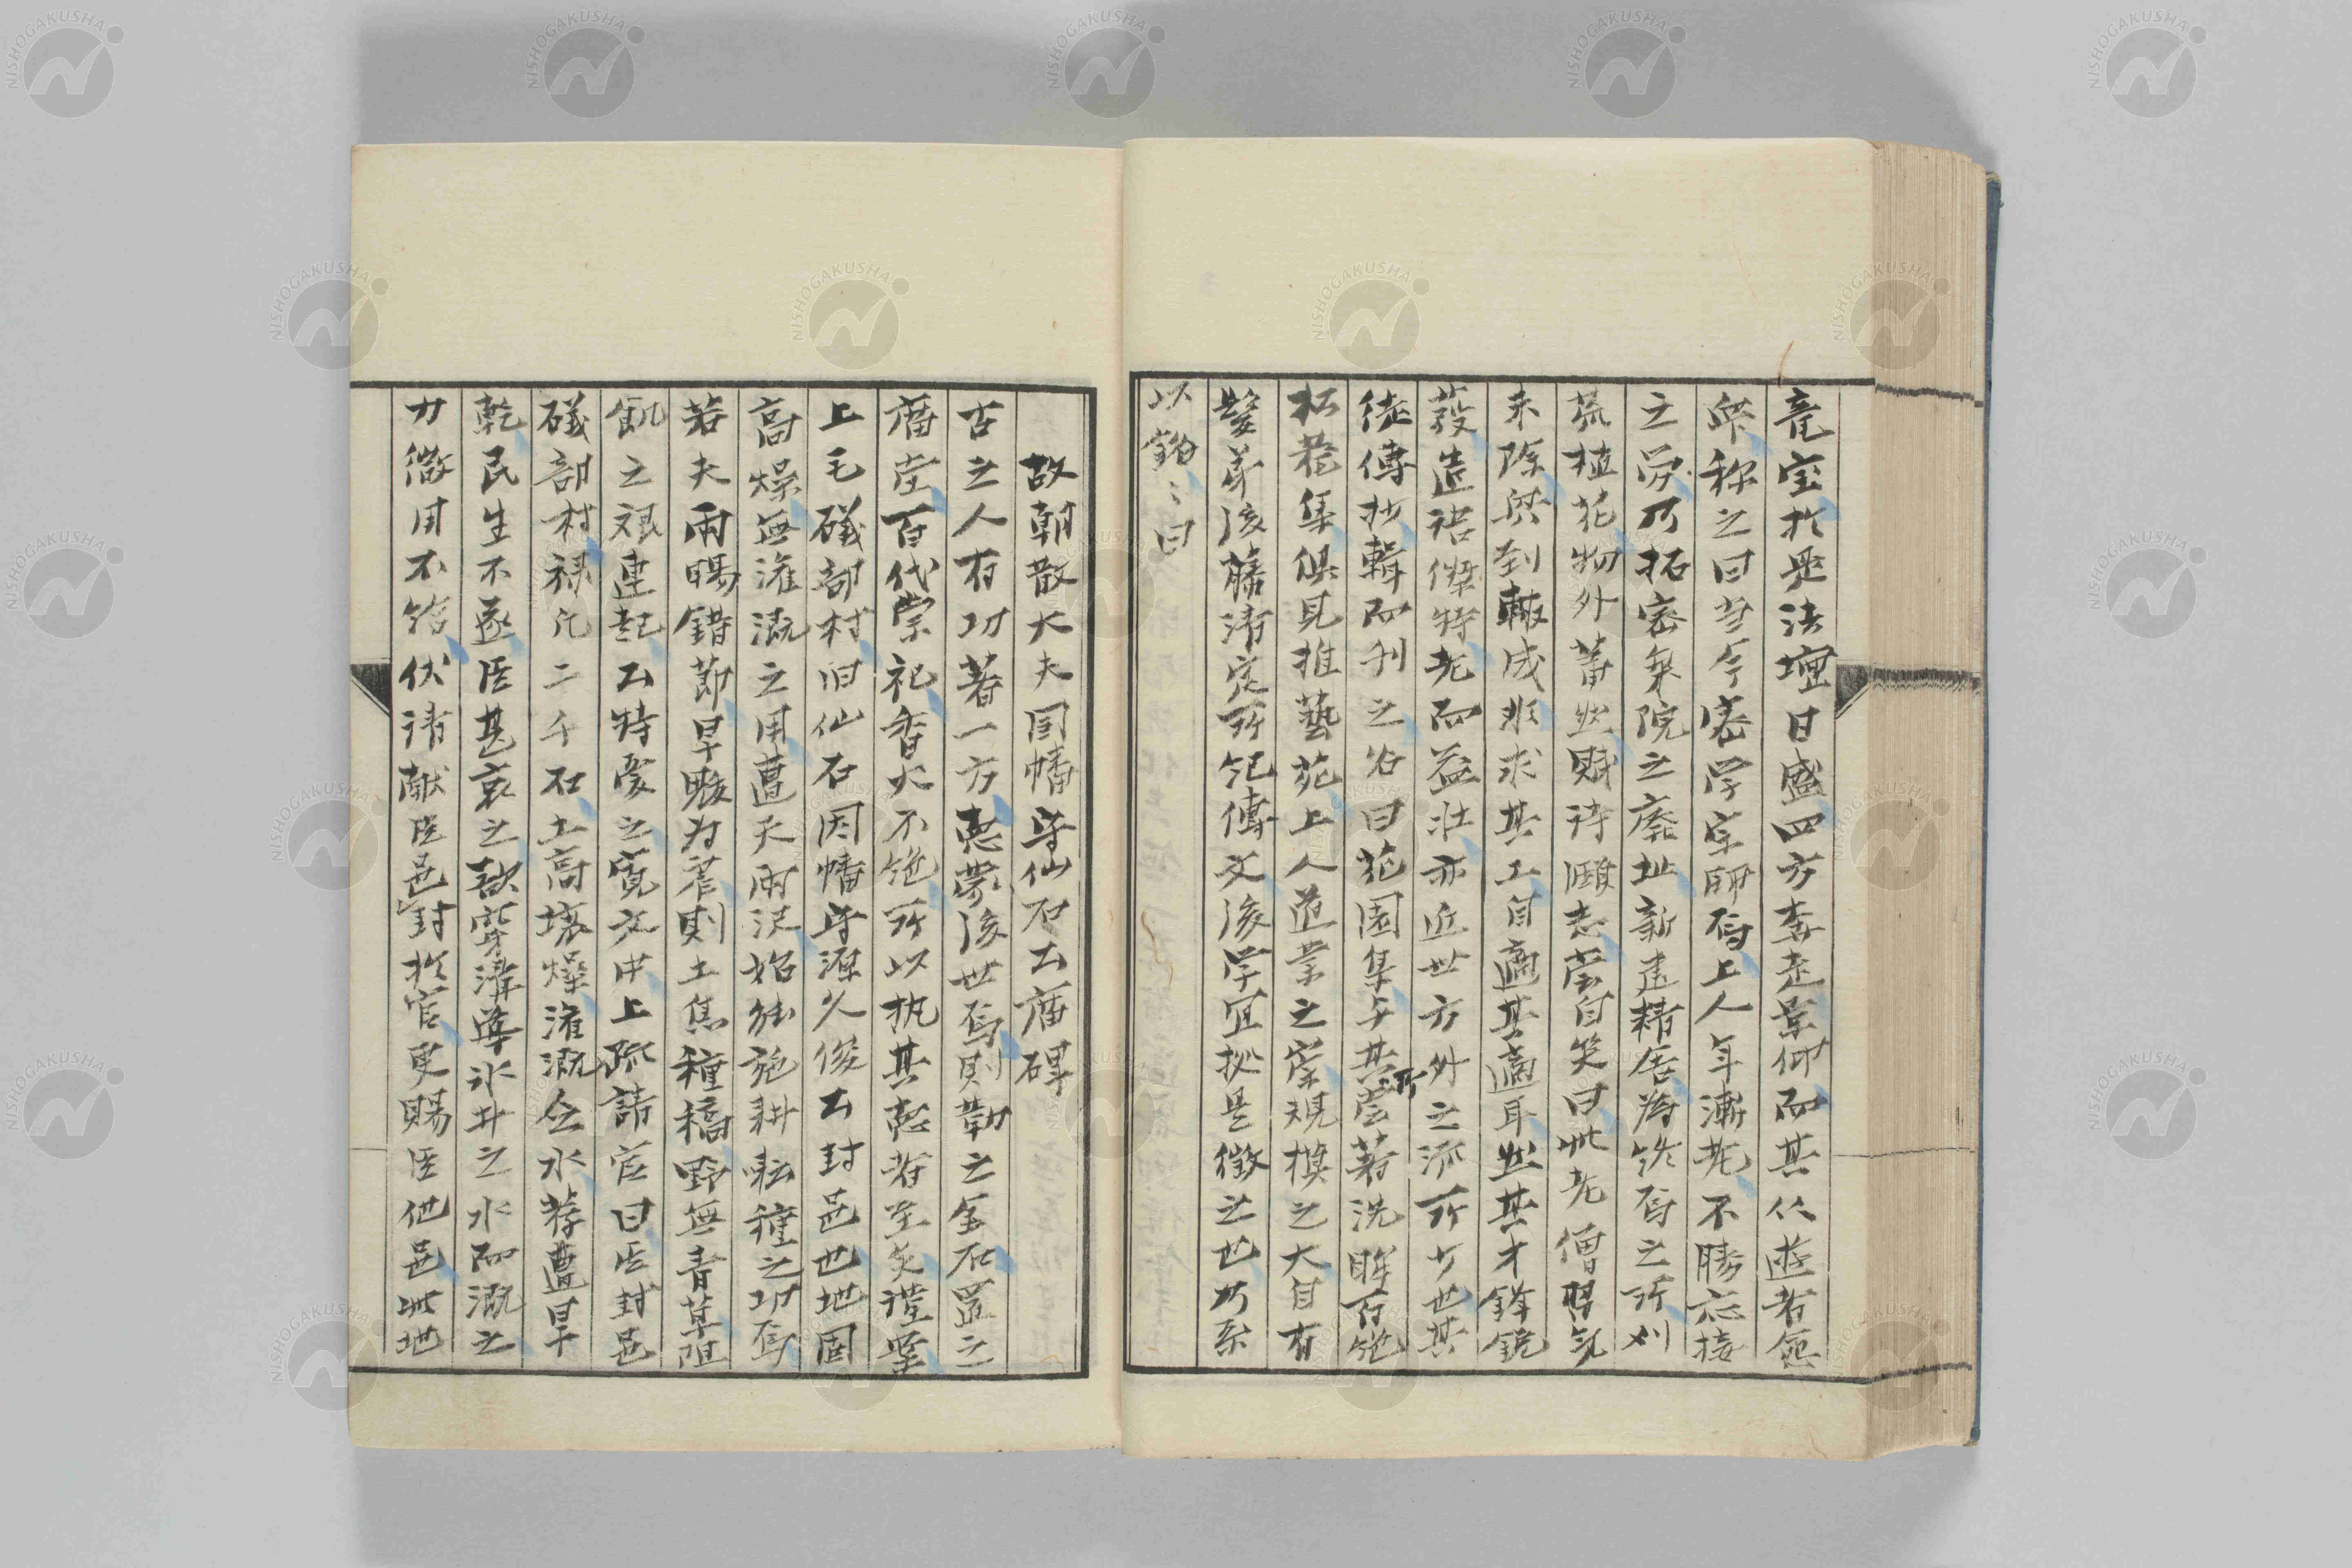 竜宝於是法壇日盛四方奔走景仰而其从遊者愈
衆称之曰当今密学宗師有上人年漸老不勝応接
之労乃拓密乗院之廃址新建精舎為終焉之所刈
荒植花物外蕭然賦詩頤志嘗自笑曰此老僧習気
未除然到輙成非求其工自適其適耳然其才鋒鋭
発造語傑特老而益壮亦近世方外之流所少也其
徒傳抄輯而刊之名曰花園集与其所嘗著洗眸百絶
柘巷集倶見推藝苑上人道業之崇規模之大自有
髮弟後藤清定所記傳文後学宜拠是徴之也乃系
以銘々曰
故朝散大夫因幡守仙石公廟碑
古之人有功著一方恵蒙後世焉則勒之金石置之
廟堂百代崇祀香火不絶所以执其恵者至矣礼堂
上毛礒部村旧仙石因幡守源久俊公封邑也地固
高燥無潅漑之用遭天雨沢始能施耕耘種之功焉
若夫雨暘錯節旱暵為害則土焦種稿野無青草阻
飢之艱連起公特憂之寛文中上疏請官曰臣封邑
礒部村禄凡二千石土高壌燥潅漑乏水荐遭旱
乾民生不遂臣甚哀之欲穿溝導氷井之水而漑之
力微用不給伏請献臣邑封於官更賜臣他邑此地